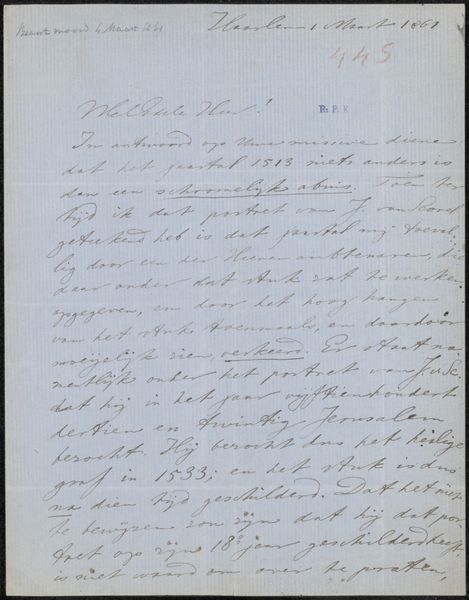 Beantwoord 4 Maart 1861
Haarlem 1 Maart 1861
445
WelEdele Heer!
R: P. K
In antwoord op Uwe missive diene
dat het jaartal 1513 niets anders is
dan een schromelijk abuis. Toen ter
tijd ik dat portret van J. van Scorel
geteekend heb is dat jaartal mij toeval,
lig door een der Heeren ambtenaren, die
daar onder dat stuk zat te werken
opgegeven, en door het hoog hangen
van het stuk toenmaals, en daardoor
moeijelijk zien, verkeerd. Er staat na,
mentlijk onder het portret van J. v. Sc.
dat hij in het jaar vijftienhondert
dertien en twintig Jerusalem
bezocht. Hij bezocht dus het heilige
graf in 1533; en het stuk is dus
na dien tijd geschilderd. Dat het niet
te bewijzen zou zijn dat hij dat por,
tret op zijn 18e jaar geschilderd heeft,
is niet waard om over te praten,